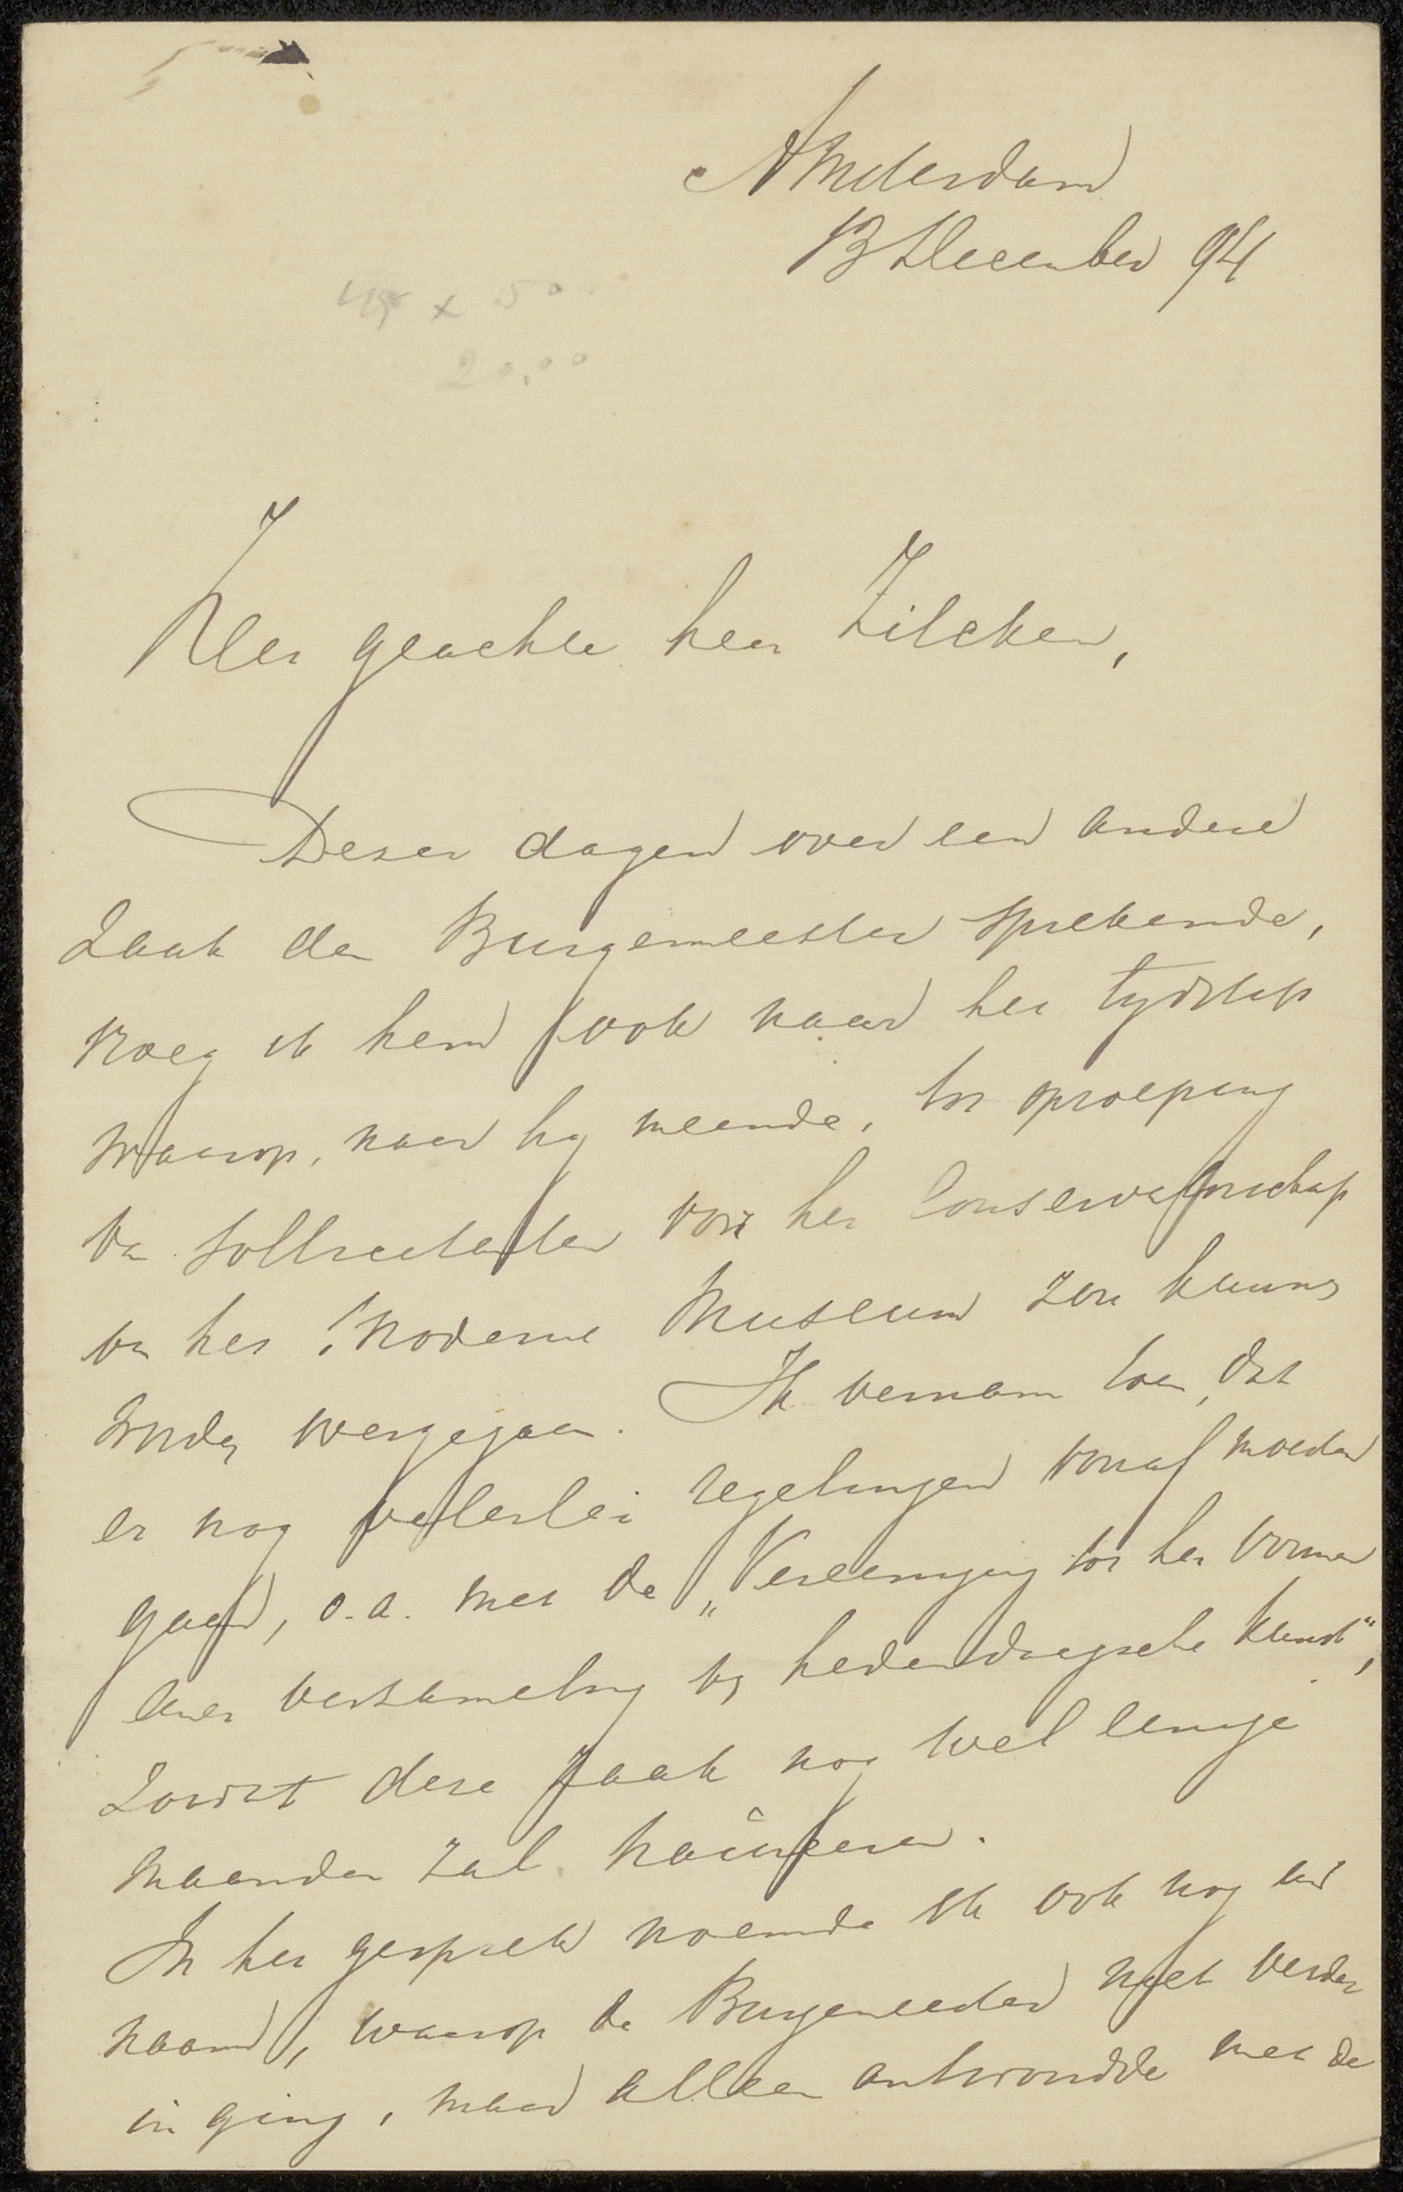 Amsterdam
13 December 94
20,00
Zeer geachte heer Zilcken,
Dezer dagen over een andere
zaak den Burgemeester sprekende,
vroeg ik hem ook naar het tydstip
waarop, naar hy meende, tot oproeping
van sollicitanten voor het Conservatorschap
van het Moderne Museum zou kunnen
worden overgegaan. Ik vernam toen, dat
er nog velerlei regelingen vooraf moeten
gaan, o.a. met de „Vereeniging tot het vormen
eener verzameling van hedendaagsche kunst",
zoodat deze zaak nog wel eenige
maanden zal
In het gesprek noemde ik ook nog uw
naam, waarop de Burgemeester niet verder
in ging, maar alleen antwoordde met de